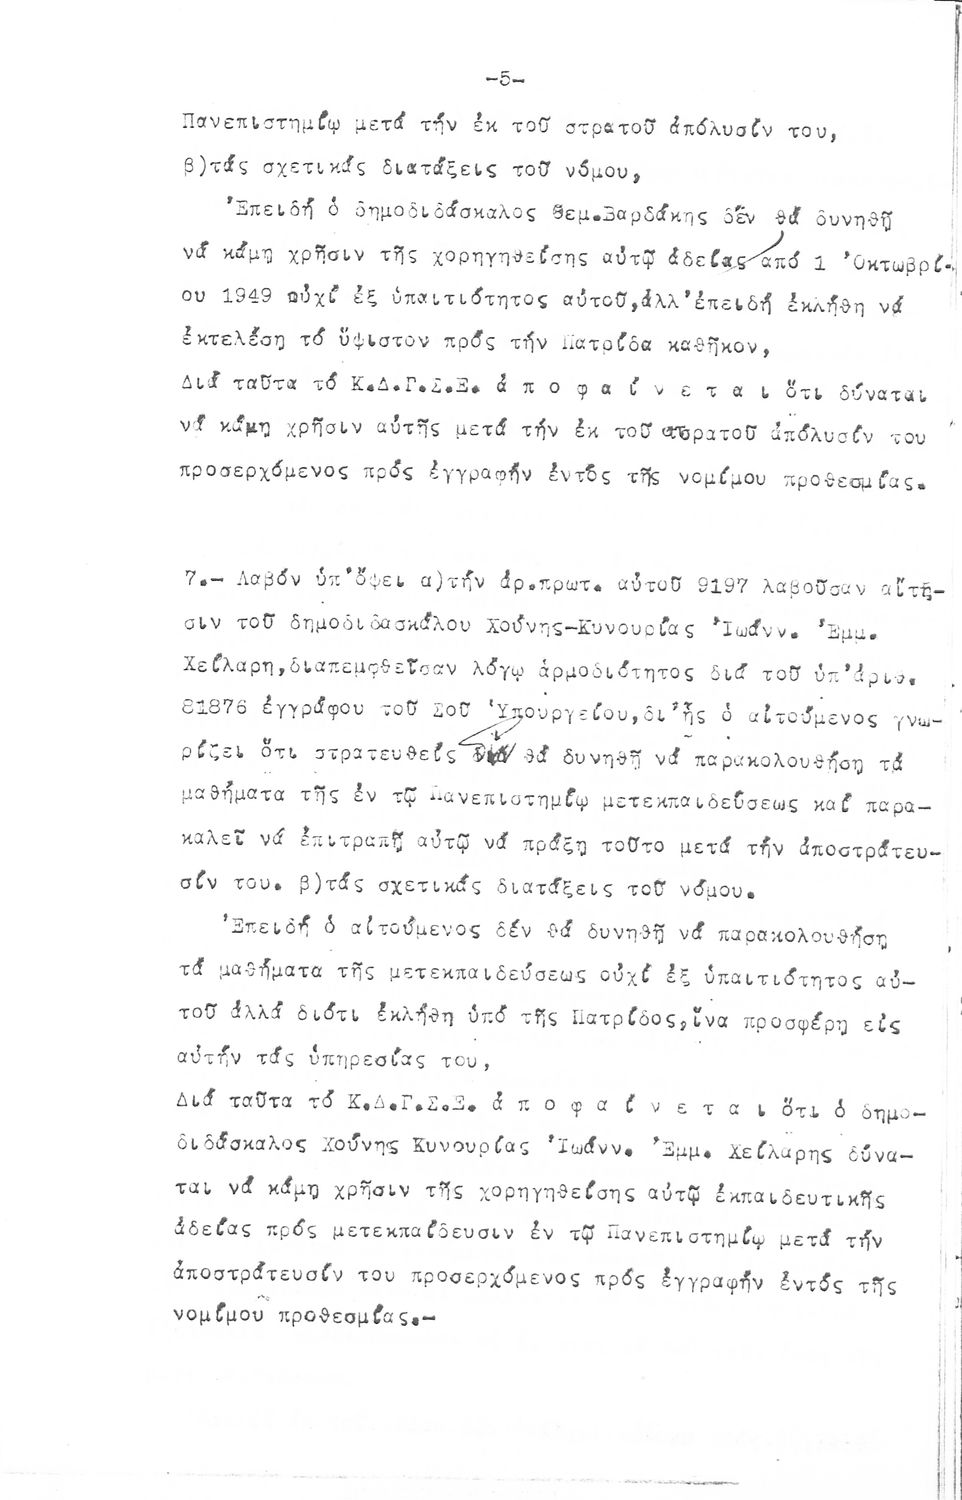 -5-
Πανεπιστημίῳ μετά τήν ἐκ τοῦ στρατοῦ ἀπόλυσίν του,
β)τάς σχετικάς διατάξεις τοῦ νόμου,
Ἐπειδή ὁ δημοδιδάσκαλος Θεμ.Βαρδάκης δέν θά δυνηθῇ
νά κάμῃ χρῆσιν τῆς χορηγηθείσης αὐτῷ ἀδείας ἀπό 1 Ὀκτωβρί-
ου 1949 οὐχί ἐξ ὑπαιτιότητος αὐτοῦ,ἀλλ'ἐπειδή ἐκλήθη νά
ἐκτελέσῃ τό ὕψιστον πρός τήν Πατρίδα καθῆκον,
Διά ταῦτα τό Κ.Δ.Γ.Σ.Ε. ἀ π ο φ α ί ν ε τ α ι ὅτι δύναται
νά κάμῃ χρῆσιν αὐτῆς μετά τήν ἐκ τοῦ στρατοῦ ἀπόλυσίν του
προσερχόμενος πρός ἐγγραφήν ἐντός τῆς νομίμου προθεσμίας.
7.- Λαβόν ὑπ'ὄψει α)τήν ἀρ.πρωτ. αὐτοῦ 9197 λαβοῦσαν αἴτη-
σιν τοῦ δημοδιδασκάλου Χούνης-Κυνουρίας Ἰωάνν. Ἐμμ.
Χείλαρη,διαπεμφθεῖσαν λόγῳ ἁρμοδιότητος διά τοῦ ὑπ'ἀριθ.
81876 ἐγγράφου τοῦ Σοῦ Ὑπουργείου,δι'ἧς ὁ αἰτούμενος γνω-
ρίζει ὅτι στρατευθείς θά δυνηθῇ νά παρακολουθήσῃ τά
μαθήματα τῆς ἐν τῷ Πανεπιστημίῳ μετεκπαιδεύσεως καί παρα-
καλεῖ νά ἐπιτραπῇ αὐτῷ νά πράξῃ τοῦτο μετά τήν ἀποστράτευ-
σίν του. β)τάς σχετικάς διατάξεις τοῦ νόμου.
Ἐπειδή ὁ αἰτούμενος δέν θά δυνηθῇ νά παρακολουθήσῃ
τά μαθήματα τῆς μετεκπαιδεύσεως οὐχί ἐξ ὑπαιτιότητος αὐ-
τοῦ ἀλλά διότι ἐκλήθη ὑπό τῆς Πατρίδος,ἵνα προσφέρῃ εἰς
αὐτήν τάς ὑπηρεσίας του,
Διά ταῦτα τό Κ.Δ.Γ.Σ.Ε. ἀ π ο φ α ί ν ε τ α ι ὅτι ὁ δημο-
διδάσκαλος Χούνης Κυνουρίας Ἰωάνν. Ἐμμ. Χείλαρης δύνα-
ται νά κάμῃ χρῆσιν τῆς χορηγηθείσης αὐτῷ ἐκπαιδευτικῆς
ἀδείας πρός μετεκπαίδευσιν ἐν τῷ Πανεπιστημίῳ μετά τήν
ἀποστράτευσίν του προσερχόμενος πρός ἐγγραφήν ἐντός τῆς
νομίμου προθεσμίας.-